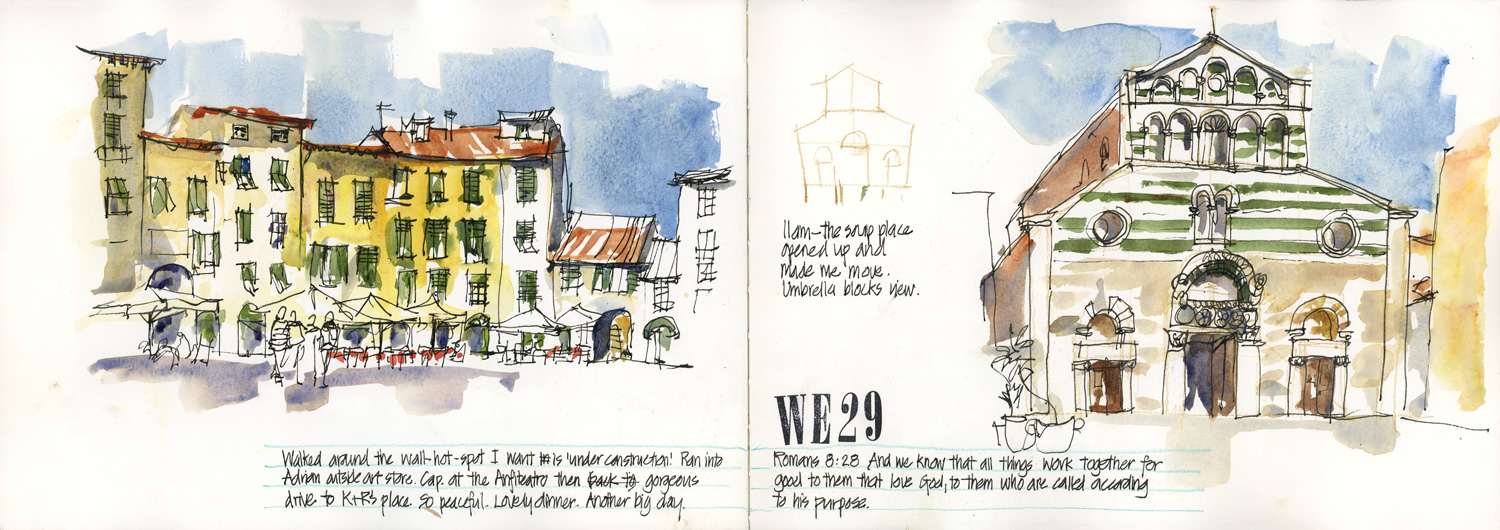 Walked around the wall-hot-spot I want is 'under construction'! Ran into
Adrian outside art store. Cap. at the Anfiteatro then back to gorgeous
drive to K+R's place. So peaceful. Lovely dinner. Another big day.
11am-the soup place
opened up and
made me move.
Umbrella blocks view.
WE29
Romans 8:28 And we know that all things work together for
good to them that love God, to them who are called according
to his purpose.